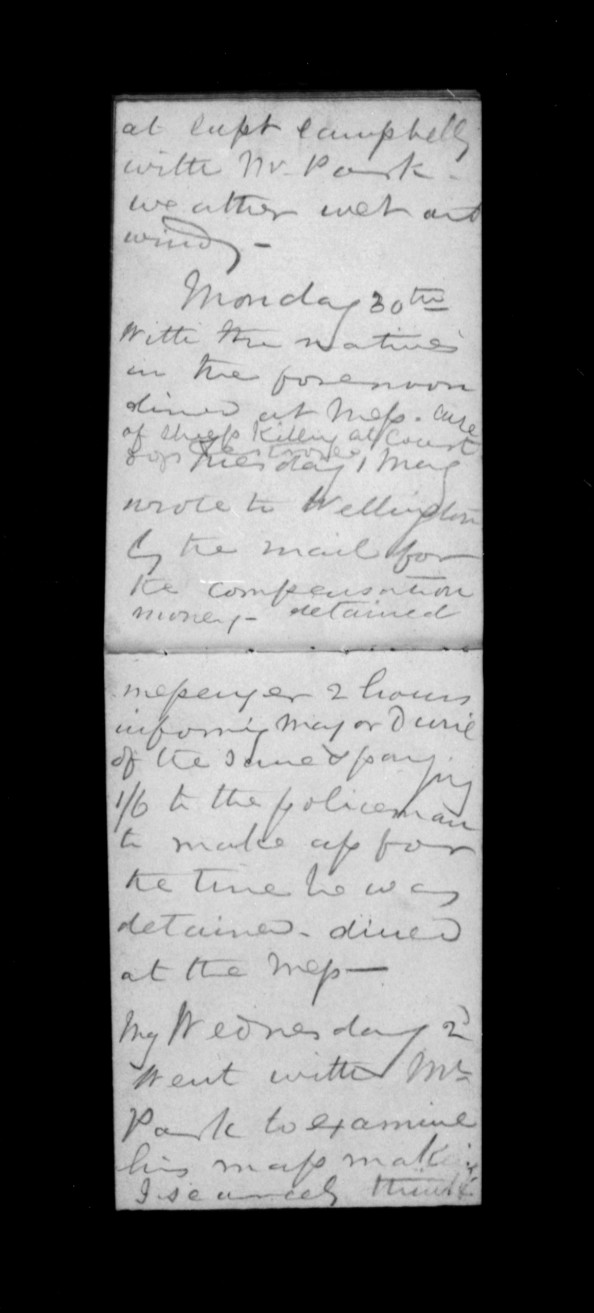 at Capt Campbells
with Mr Park -
weather wet and
windy -
Monday 30th
With the natives
in the forenoon
dined at Mess. case
of sheep Killing at Court
dogs destroyed
Tuesday 1 May
wrote to Wellington
by the mail for
the compensation
money - detained
messenger 2 hours
informing Major Durie
of the same & paying
1/6 to the policeman
to make up for
the time he was
detained - dined
at the Mess -
My Wednesday 2
Went with Mr
Park to examine
his map making
I scarcely think